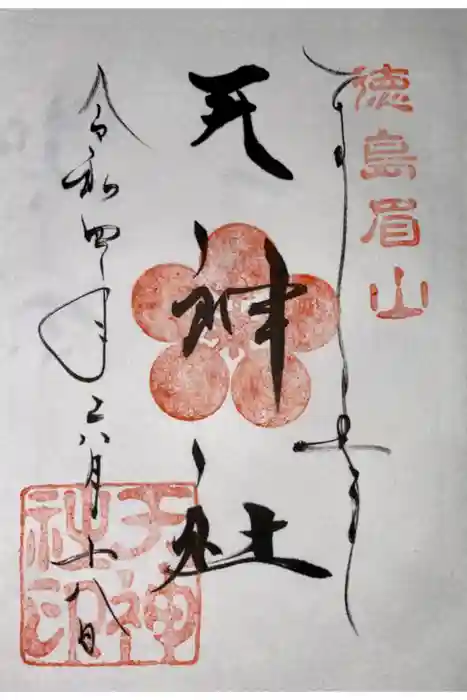 徳島眉山
天神社
令和四年六月十八日
天神社印